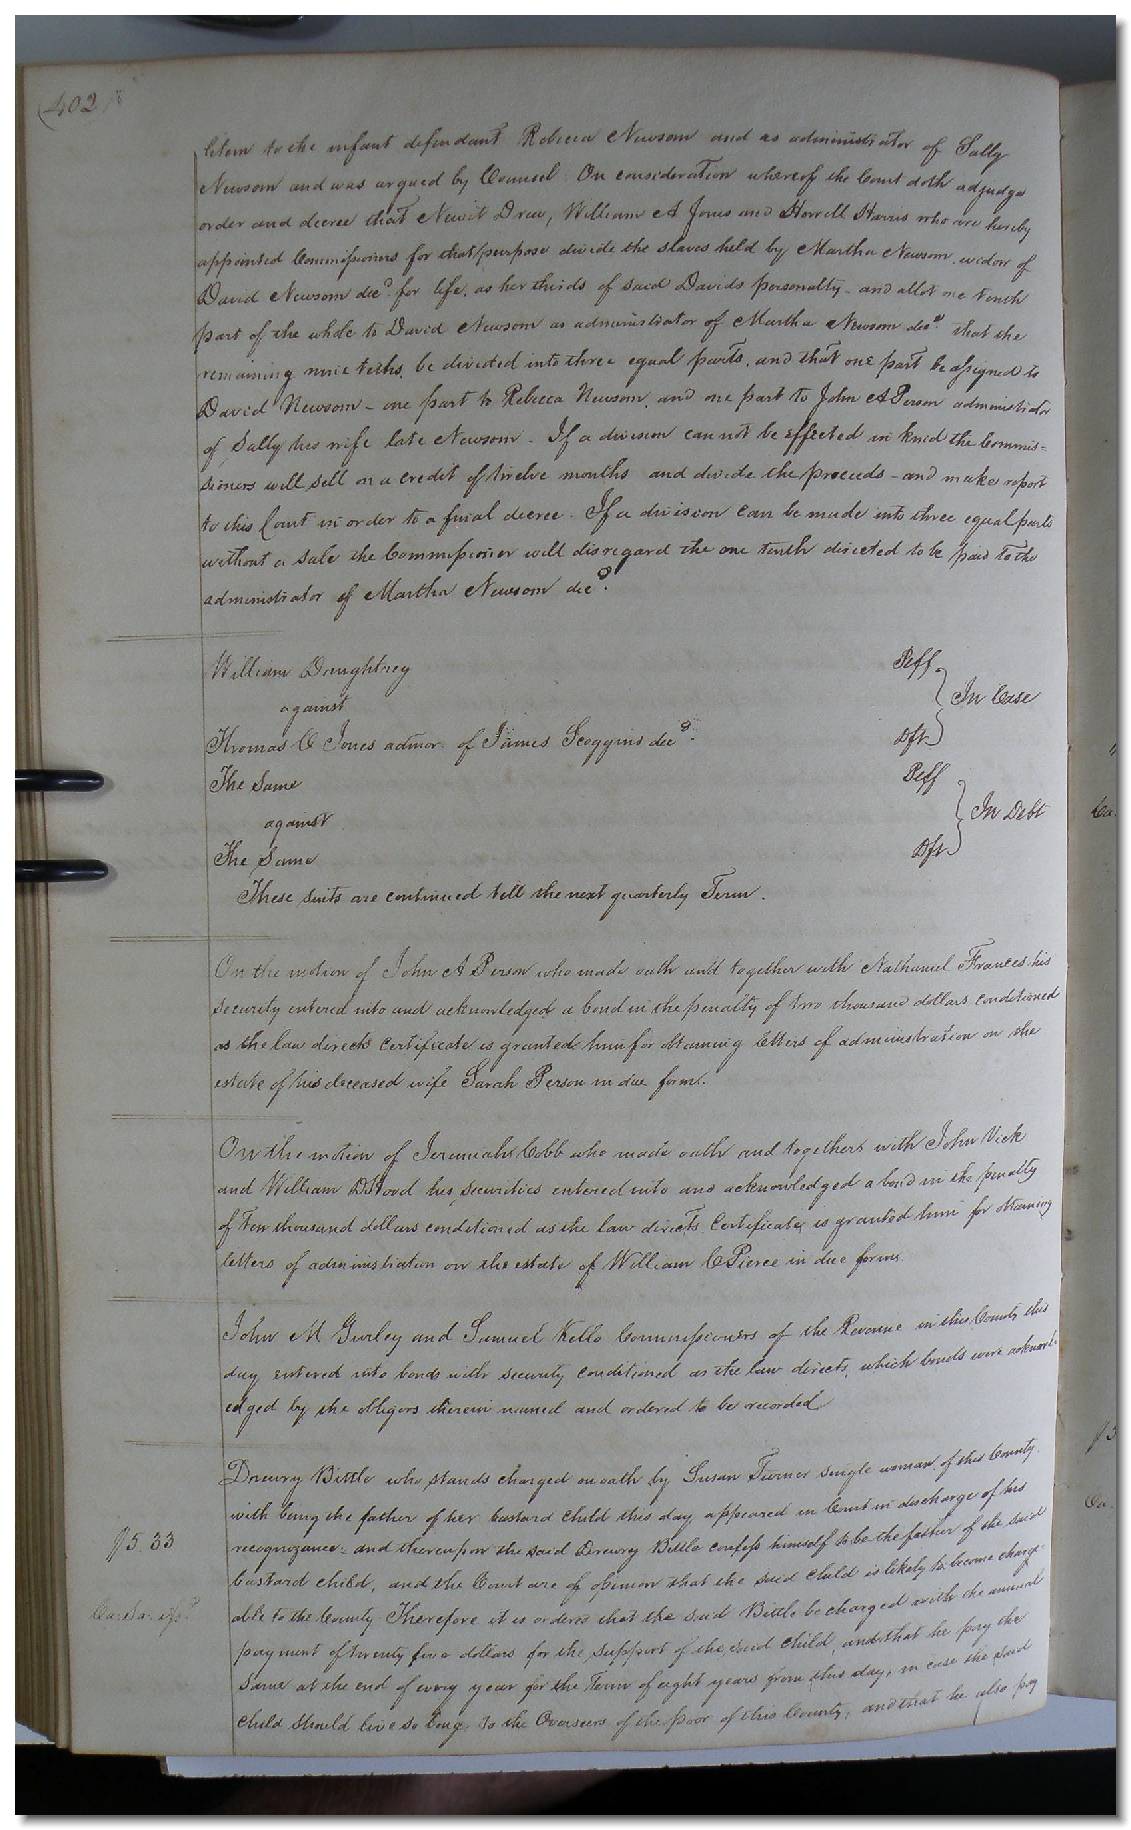 (402
litem to the infant defendant Rebecca Newsom and as administrator of Sally
Newsom and was argued by Counsel. On consideration whereof the Court doth adjudge
order and decree that Newit Drew, William A Jones and Howell Harris who are hereby
appointed Commissioners for that purpose divide the slaves held by Martha Newsom widow of
David Newsom decd. for life, as her thirds of said Davids personalty - and allot one tenth
part of the whole to David Newsom as administrator of Martha Newsom decd. that the
remaining nine tenths, be divided into three equal parts, and that one part be assigned to
David Newsom - one part to Rebecca Newsom, and one part to John A Person administrator
of Sally his wife late Newsom. If a division cannot be effected in kind the Commis-
sioners will sell on a credit of twelve months and divide the proceeds - and make report
to this Court in order to a final decree. If a division can be made into three equal parts
without a sale the Commissioner will disregard the one tenth directed to be paid to the
administrator of Martha Newsom decd.
William Doughtrey Plff
against In Case
Thomas C Jones admor. of James Scoggins decd. Dft
The Same Plff
against In Debt
The Same Dft
These suits are continued till the next quarterly Term.
On the motion of John A Person who made oath and together with Nathaniel Frances his
security entered into and acknowledged a bond in the penalty of two thousand dollars conditioned
as the law directs certificate is granted him for obtaining letters of administration on the
estate of his deceased wife Sarah Person in due form.
On the motion of Jeremiah Cobb who made oath and together with John Vick
and William D Hood his securities entered into and acknowledged a bond in the penalty
of Ten thousand dollars conditioned as the law directs certificate is granted him for obtaining
letters of administration on the estate of William C Pierce in due form
John M Gurley and Samuel Kello Commissioners of the Revenue in this County this
day entered into bonds with security conditioned as the law directs, which bonds were acknowl-
edged by the obligors therein named and ordered to be recorded
Drewry Bittle who stands charged on oath by Susan Turner single woman of this County
with being the father of her bastard child this day appeared in Court in discharge of his
recognizance - and thereupon the said Drewry Bittle confess himself to be the father of the said
bastard child, and the Court are of opinion that the said child is likely to become charge-
able to the County Therefore it is ordered that the said Bittle be charged with the annual
payment of twenty five dollars for the support of the said child, and that he pay the
same at the end of every year for the Term of eight years from this day, in case the said
child should live so long, to the Overseers of the poor of this County, and that he also pay
$5.33